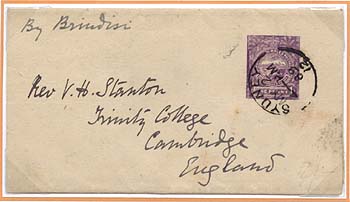 By Brindisi
Rev V. H. Stanton
Trinity College
Cambridge
England
SYDNEY